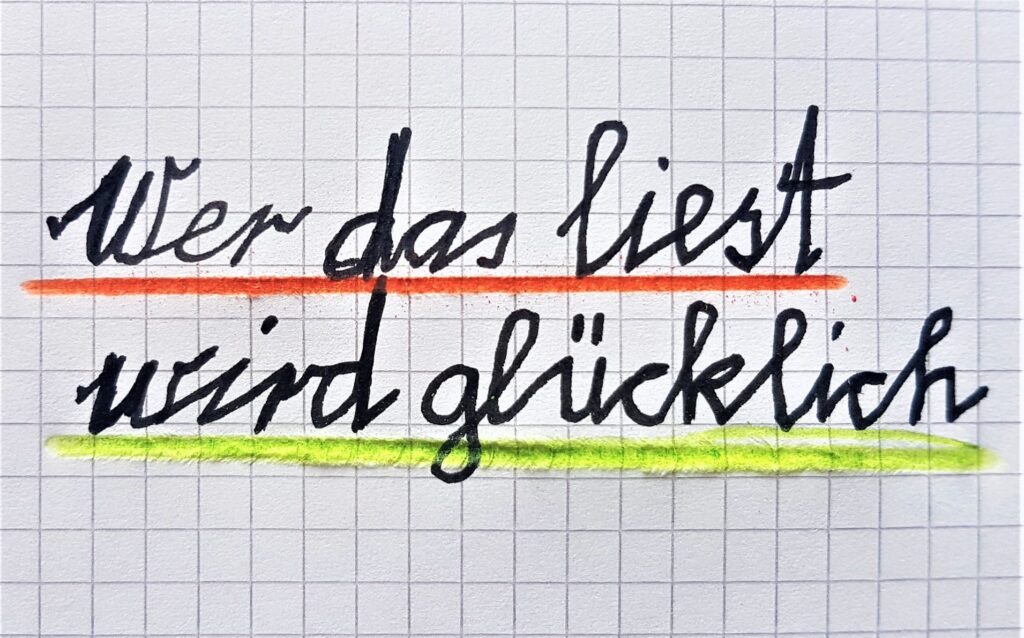 Wer das liest
wird glücklich